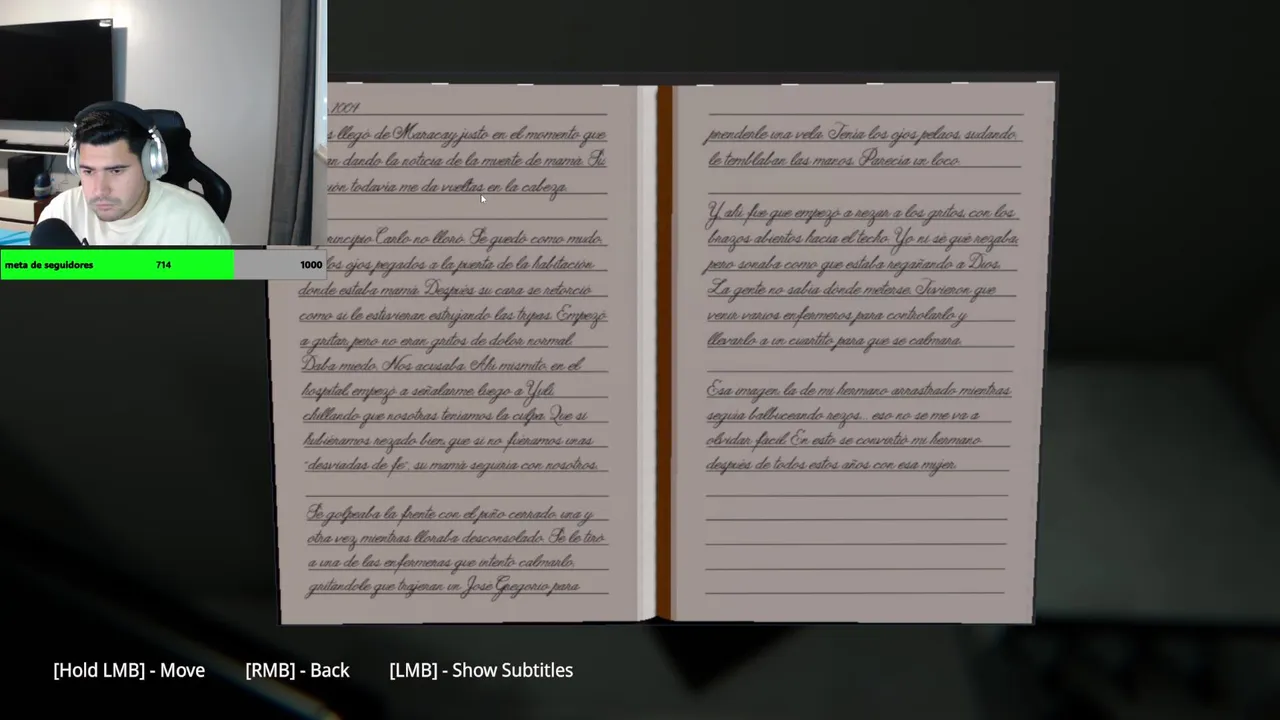 1004
llegó de Maracay justo en el momento que
dando la noticia de la muerte de mamá. Su
todavía me da vueltas en la cabeza.
principio Carlo no lloró. Se quedó como mudo,
los ojos pegados a la puerta de la habitación
donde estaba mamá. Después su cara se retorció
como si le estuvieran estrujando las tripas. Empezó
a gritar, pero no eran gritos de dolor normal.
Daba miedo. Nos acusaba. Ahí mismito, en el
hospital, empezó a señalarme, luego a Yuli,
chillando que nosotras teníamos la culpa. Que si
hubiéramos rezado bien, que si no fuéramos unas
"desviadas de fe", su mamá seguiría con nosotros.
Se golpeaba la frente con el puño cerrado, una y
otra vez, mientras lloraba desconsolado. Se le tiró
a una de las enfermeras que intentó calmarlo,
gritándole que trajeran un José Gregorio para
prenderle una vela. Tenía los ojos pelaos, sudando,
le temblaban las manos. Parecía un loco.
Y ahí fue que empezó a rezar a los gritos, con los
brazos abiertos hacia el techo. Yo ni sé qué rezaba,
pero sonaba como que estaba regañando a Dios.
La gente no sabía dónde meterse. Tuvieron que
venir varios enfermeros para controlarlo y
llevarlo a un cuartito para que se calmara.
Esa imagen, la de mi hermano arrastrado mientras
seguía balbuceando rezos... eso no se me va a
olvidar fácil. En esto se convirtió mi hermano
después de todos estos años con esa mujer.
meta de seguidores 714 1000
[Hold LMB] - Move [RMB] - Back [LMB] - Show Subtitles